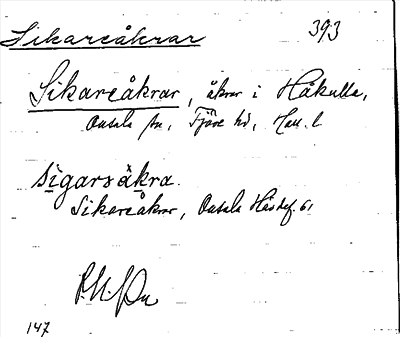 Sikareåkrar 393
Sikareåkrar, åkrar i Håkulla,
Onsala sn, Fjäre hd, Hall. l
sigarsåkra.
Sikareåkrar, Onsala Häsdef. 61
147